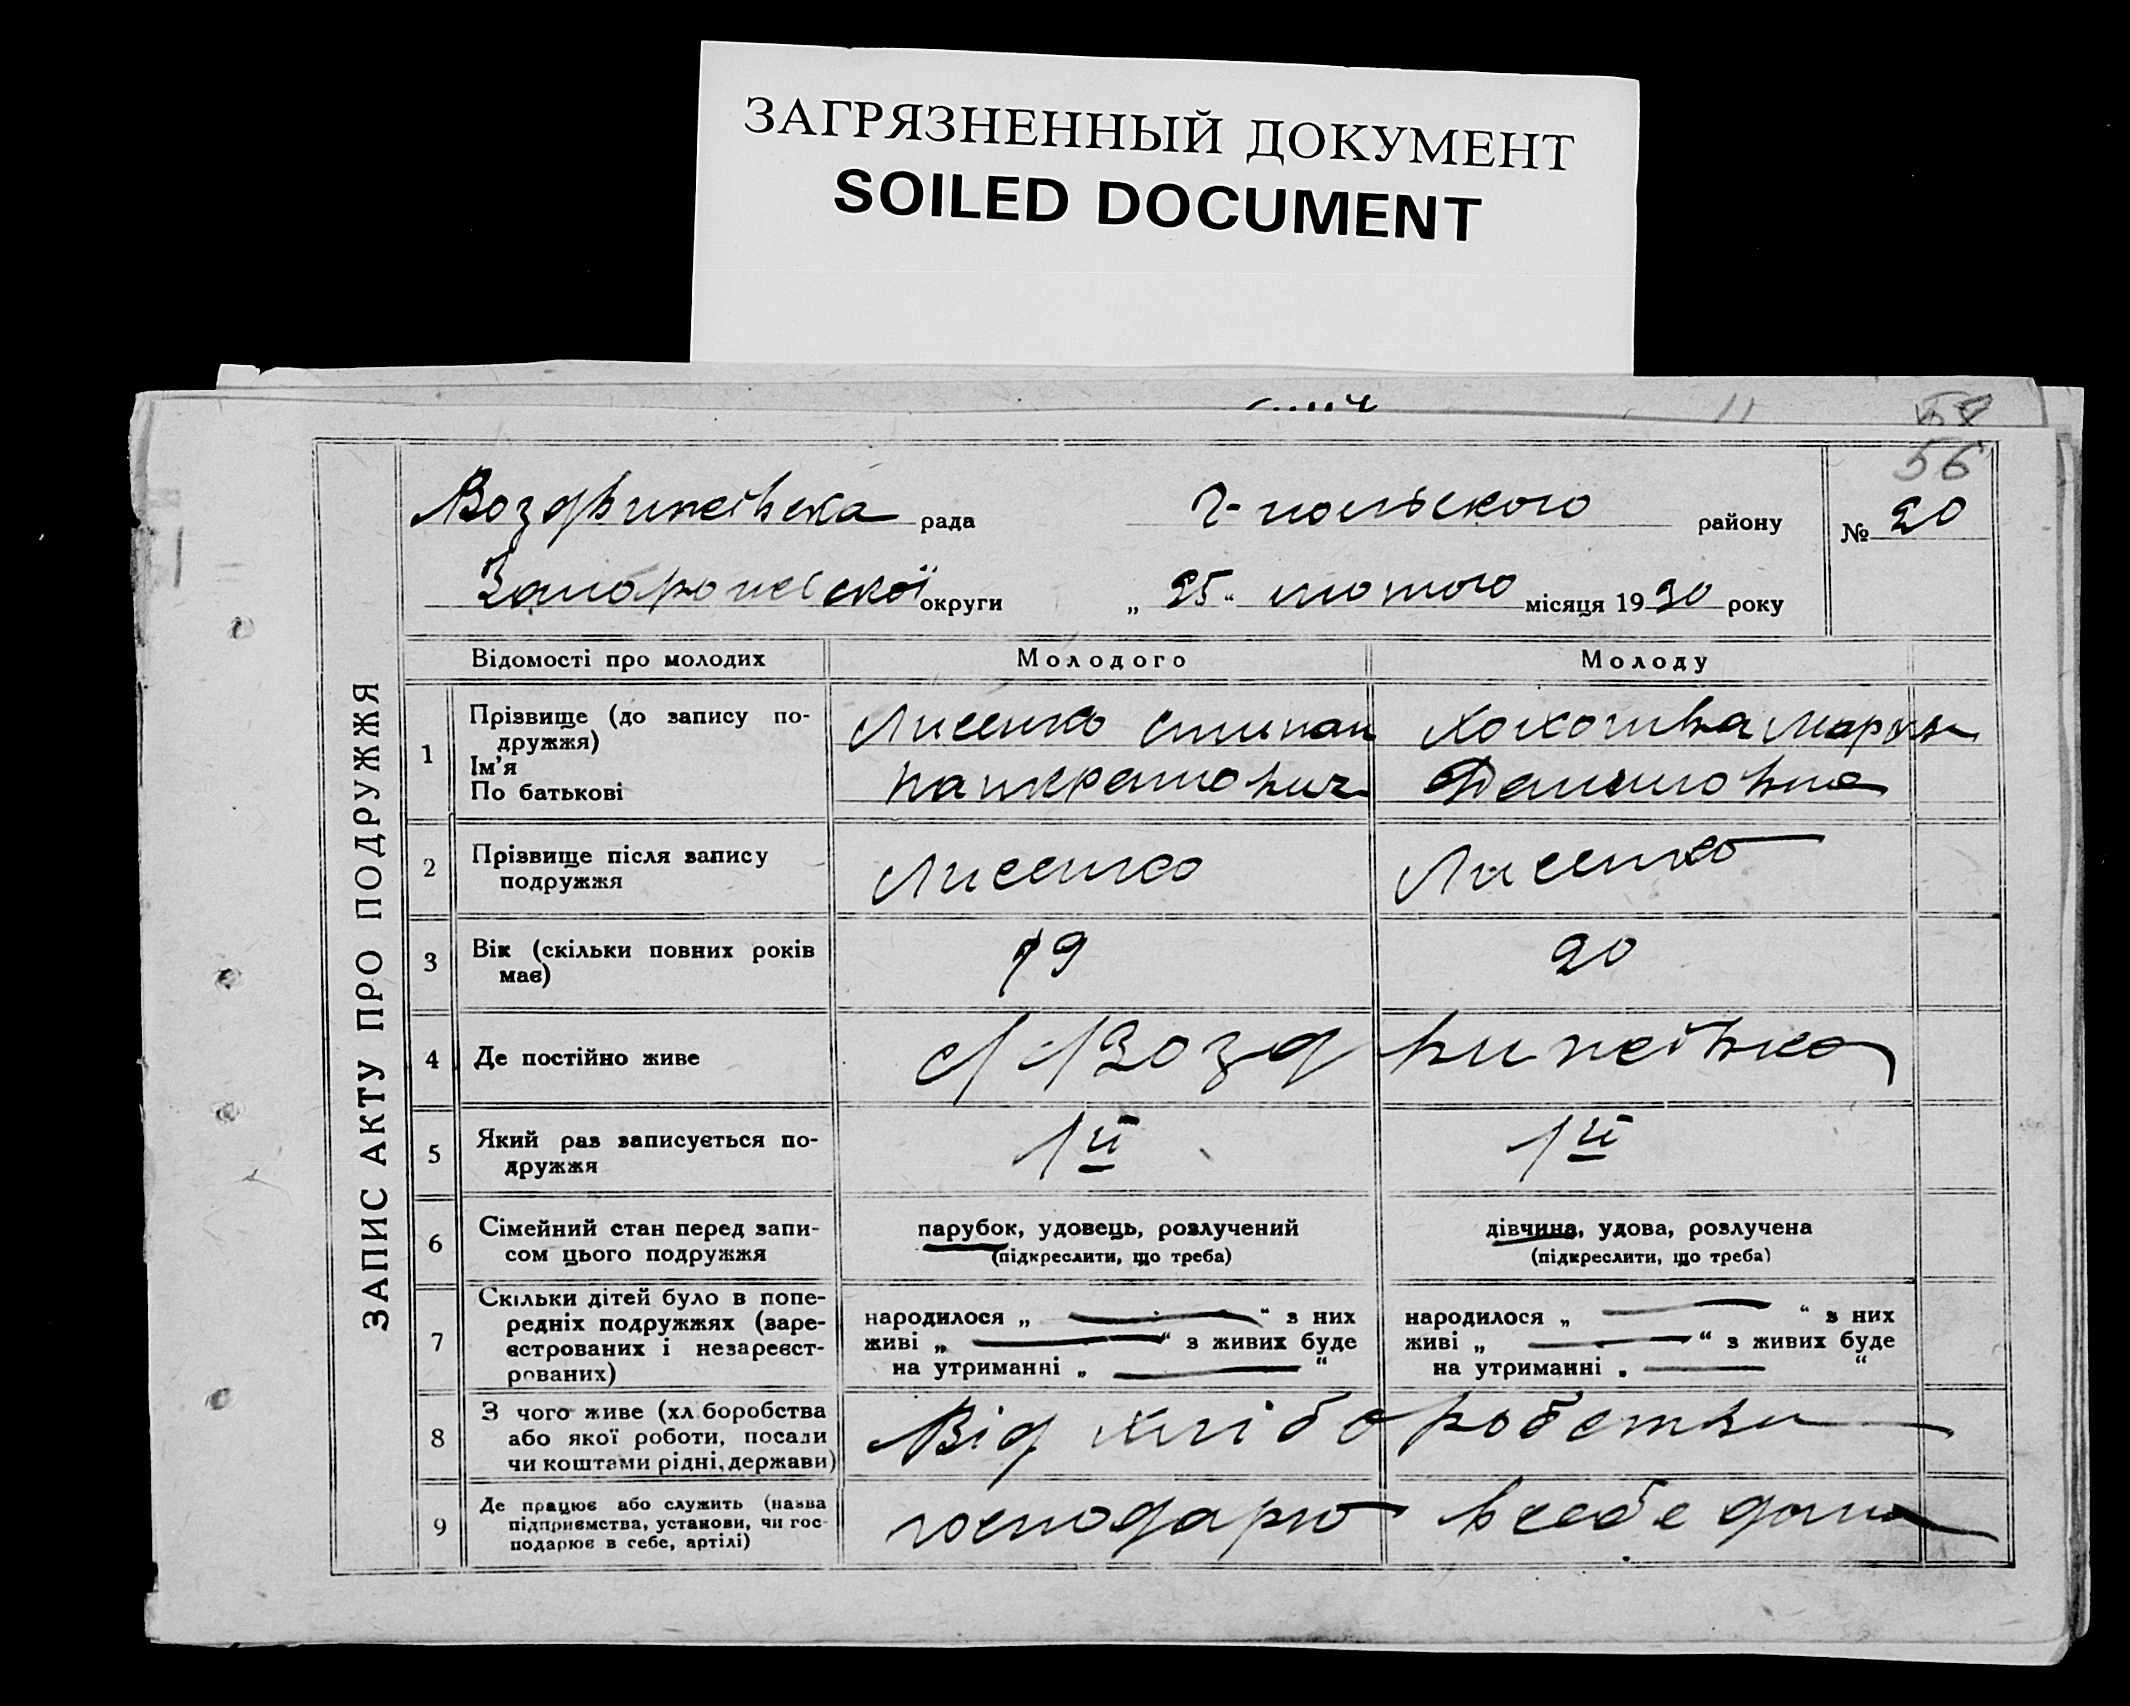 ЗАГРЯЗНЕННЫЙ ДОКУМЕНТ
SOILED DOCUMENT
56
Воздвижівська рада Г-польського району № 20
Запоріжської округи „ 25 “ лютого місяця 1930 року
ЗАПИС АКТУ ПРО ПОДРУЖЖЯ
Відомості про молодих Молодого Молоду
1 Прізвище (до запису по-
дружжя)
Ім'я
По батькові
Лисенко Степан
Панкратович
Марія
Даниловна
2 Прізвище після запису
подружжя
Лисенко Лисенко
3 Вік (скільки повних років
має)
19 20
4 Де постійно живе
с Воздвижівка
5 Який раз записується по-
дружжя
1й 1й
6 Сімейний стан перед запи-
сом цього подружжя
парубок, удовець, розлучений
(підкреслити, що треба)
дівчина, удова, розлучена
(підкреслити, що треба)
7 Скільки дітей було в попе-
редніх подружжях (заре-
єстрованих і незареєст-
рованих)
народилося „ — “ з них
живі „ — “ з живих буде
на утриманні „ — “
народилося „ — “ з них
живі „ — “ з живих буде
на утриманні „ — “
8 З чого живе (хліборобства
або якої роботи, посади
чи коштами рідні, держави)
Від хліборобства
9 Де працює або служить (назва
підприємства, установи, чи гос-
подарює в себе, артілі)
господарю в себе дома